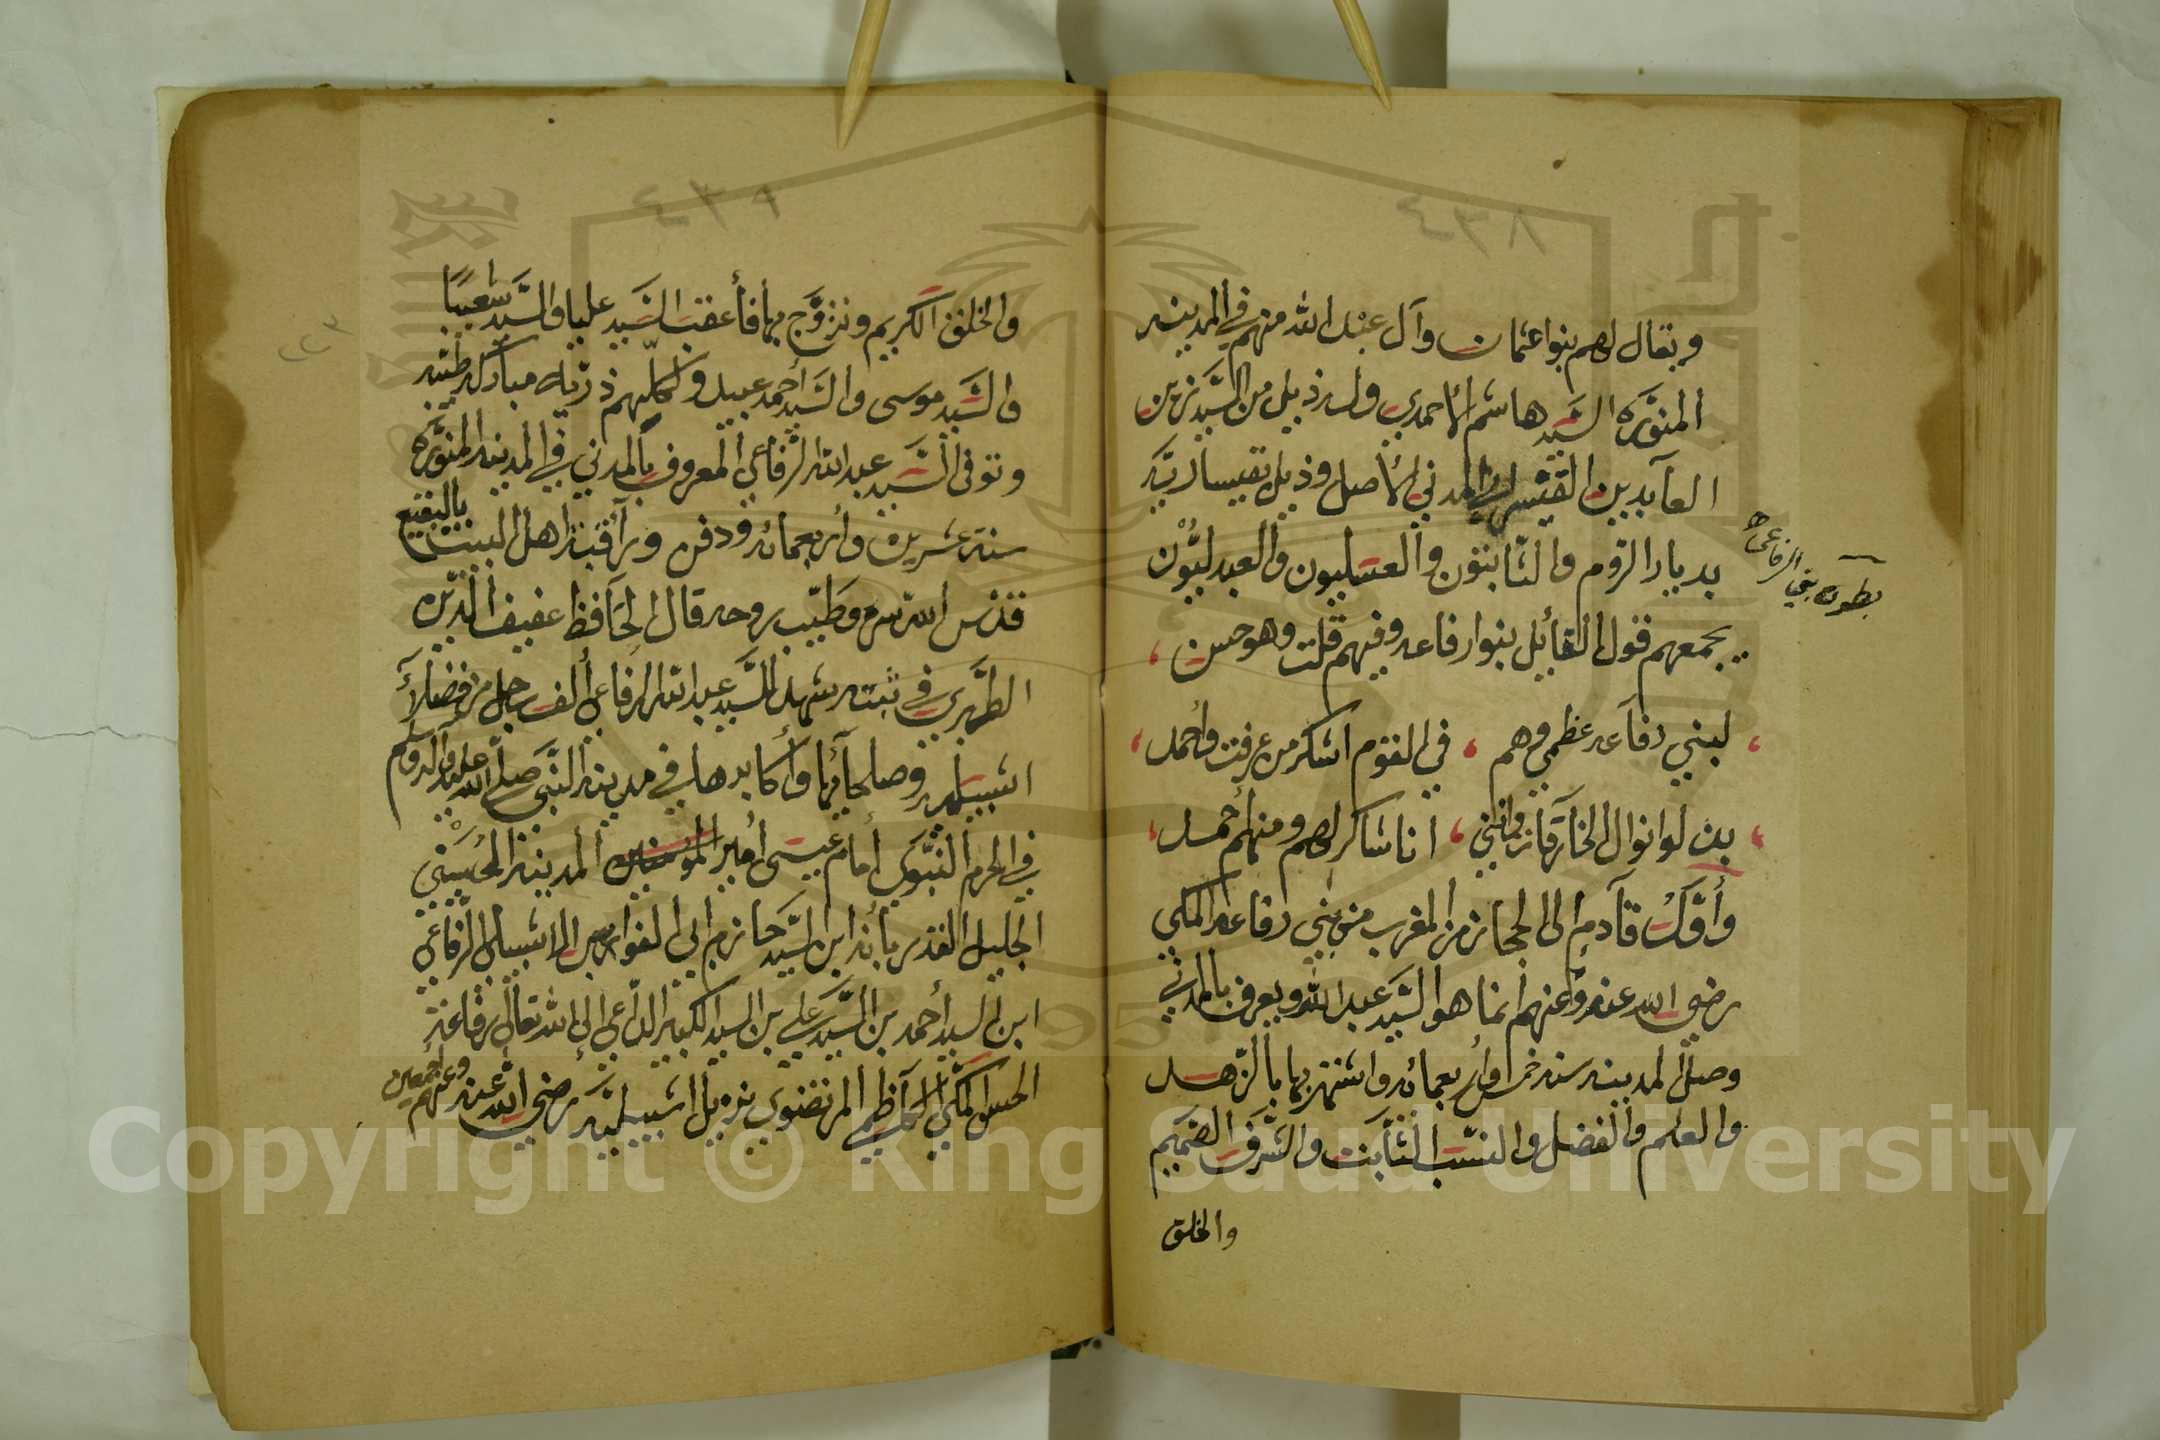 ٤٣٨
ويقال لهم بنوا عثمان وآل عبد الله منهم في المدينه
المنوَّره السَّيد هاشم الأحمدي وله ذيل من السَّيد زين
العآبدين المدني الأصل وذيل بقيساريَّه
بديار الرّوم والثّابتون والعسليون والعبدليُّون
يجمعهم قول القآئل بنوا رفاعه وفيهم قلت وهو حسن ،
بطون بني الرفاعي
، لبني رفاعه عظمي وهم ، في القوم اشكر من عرفت وأحمد ،
، بذلوا نوال فإنني ، انا شاكر لهم ومنهم أحمد ،
وأوّل قآدم إلى الحجاز من المغرب من بني رفاعه المكي
رضي الله عنه وعنهم انما هو السَّيد عبد الله ويعرف بالمدني
وصل المدينه سنه خمس وأربعمائه واشتهر بها بالزّهد
والعلم والفضل والنسّب الثّابت والشّرف الصَّميم
والخلق
٤٣٩
٢٢٣
والخلق الكريم وتزوَّج بها فأعقب السَّيد عليا والسَّيد شعيبا
والسَّيد موسى والسَّيد أحمد عبيد ولكلّهم ذريّة مباركه طيّبه
وتوفى السَّيد عبد الله الرّفاعي المعروف بالمدني في المدينه المنوَّره
سنة عشرين وأربعمائه ودفن ورآء قبّة أهل البيت بالبقيع
قدّس الله سره وطَيّب روحه قال الحآفظ عفيف الدّين
الطَّبري في ثبته شهد للسَّيد عبد الله الرفاعي ألف رجل من فضلآء
اشبيليه وصلحآئها وأكابرها في مدينة النَّبي صلَّى الله عليه وآله وسلم
في الحرم النَّبوي أمام عيسى أمير المدينة الحسيني
الجليل القدر بأنه ابن السَّيد حازم أبي الفوارس الاشبيلي الرّفاعي
ابن السيد أحمد بن السَّيد علي بن السيد الكبير الدّاعي إلى الله تعالى رفاعة
الحسن المكّي الكآظمي المرتضوي نزيل اشبيليَّه رضي الله عنه وعنهم أجمعين
Copyright © King Saud University